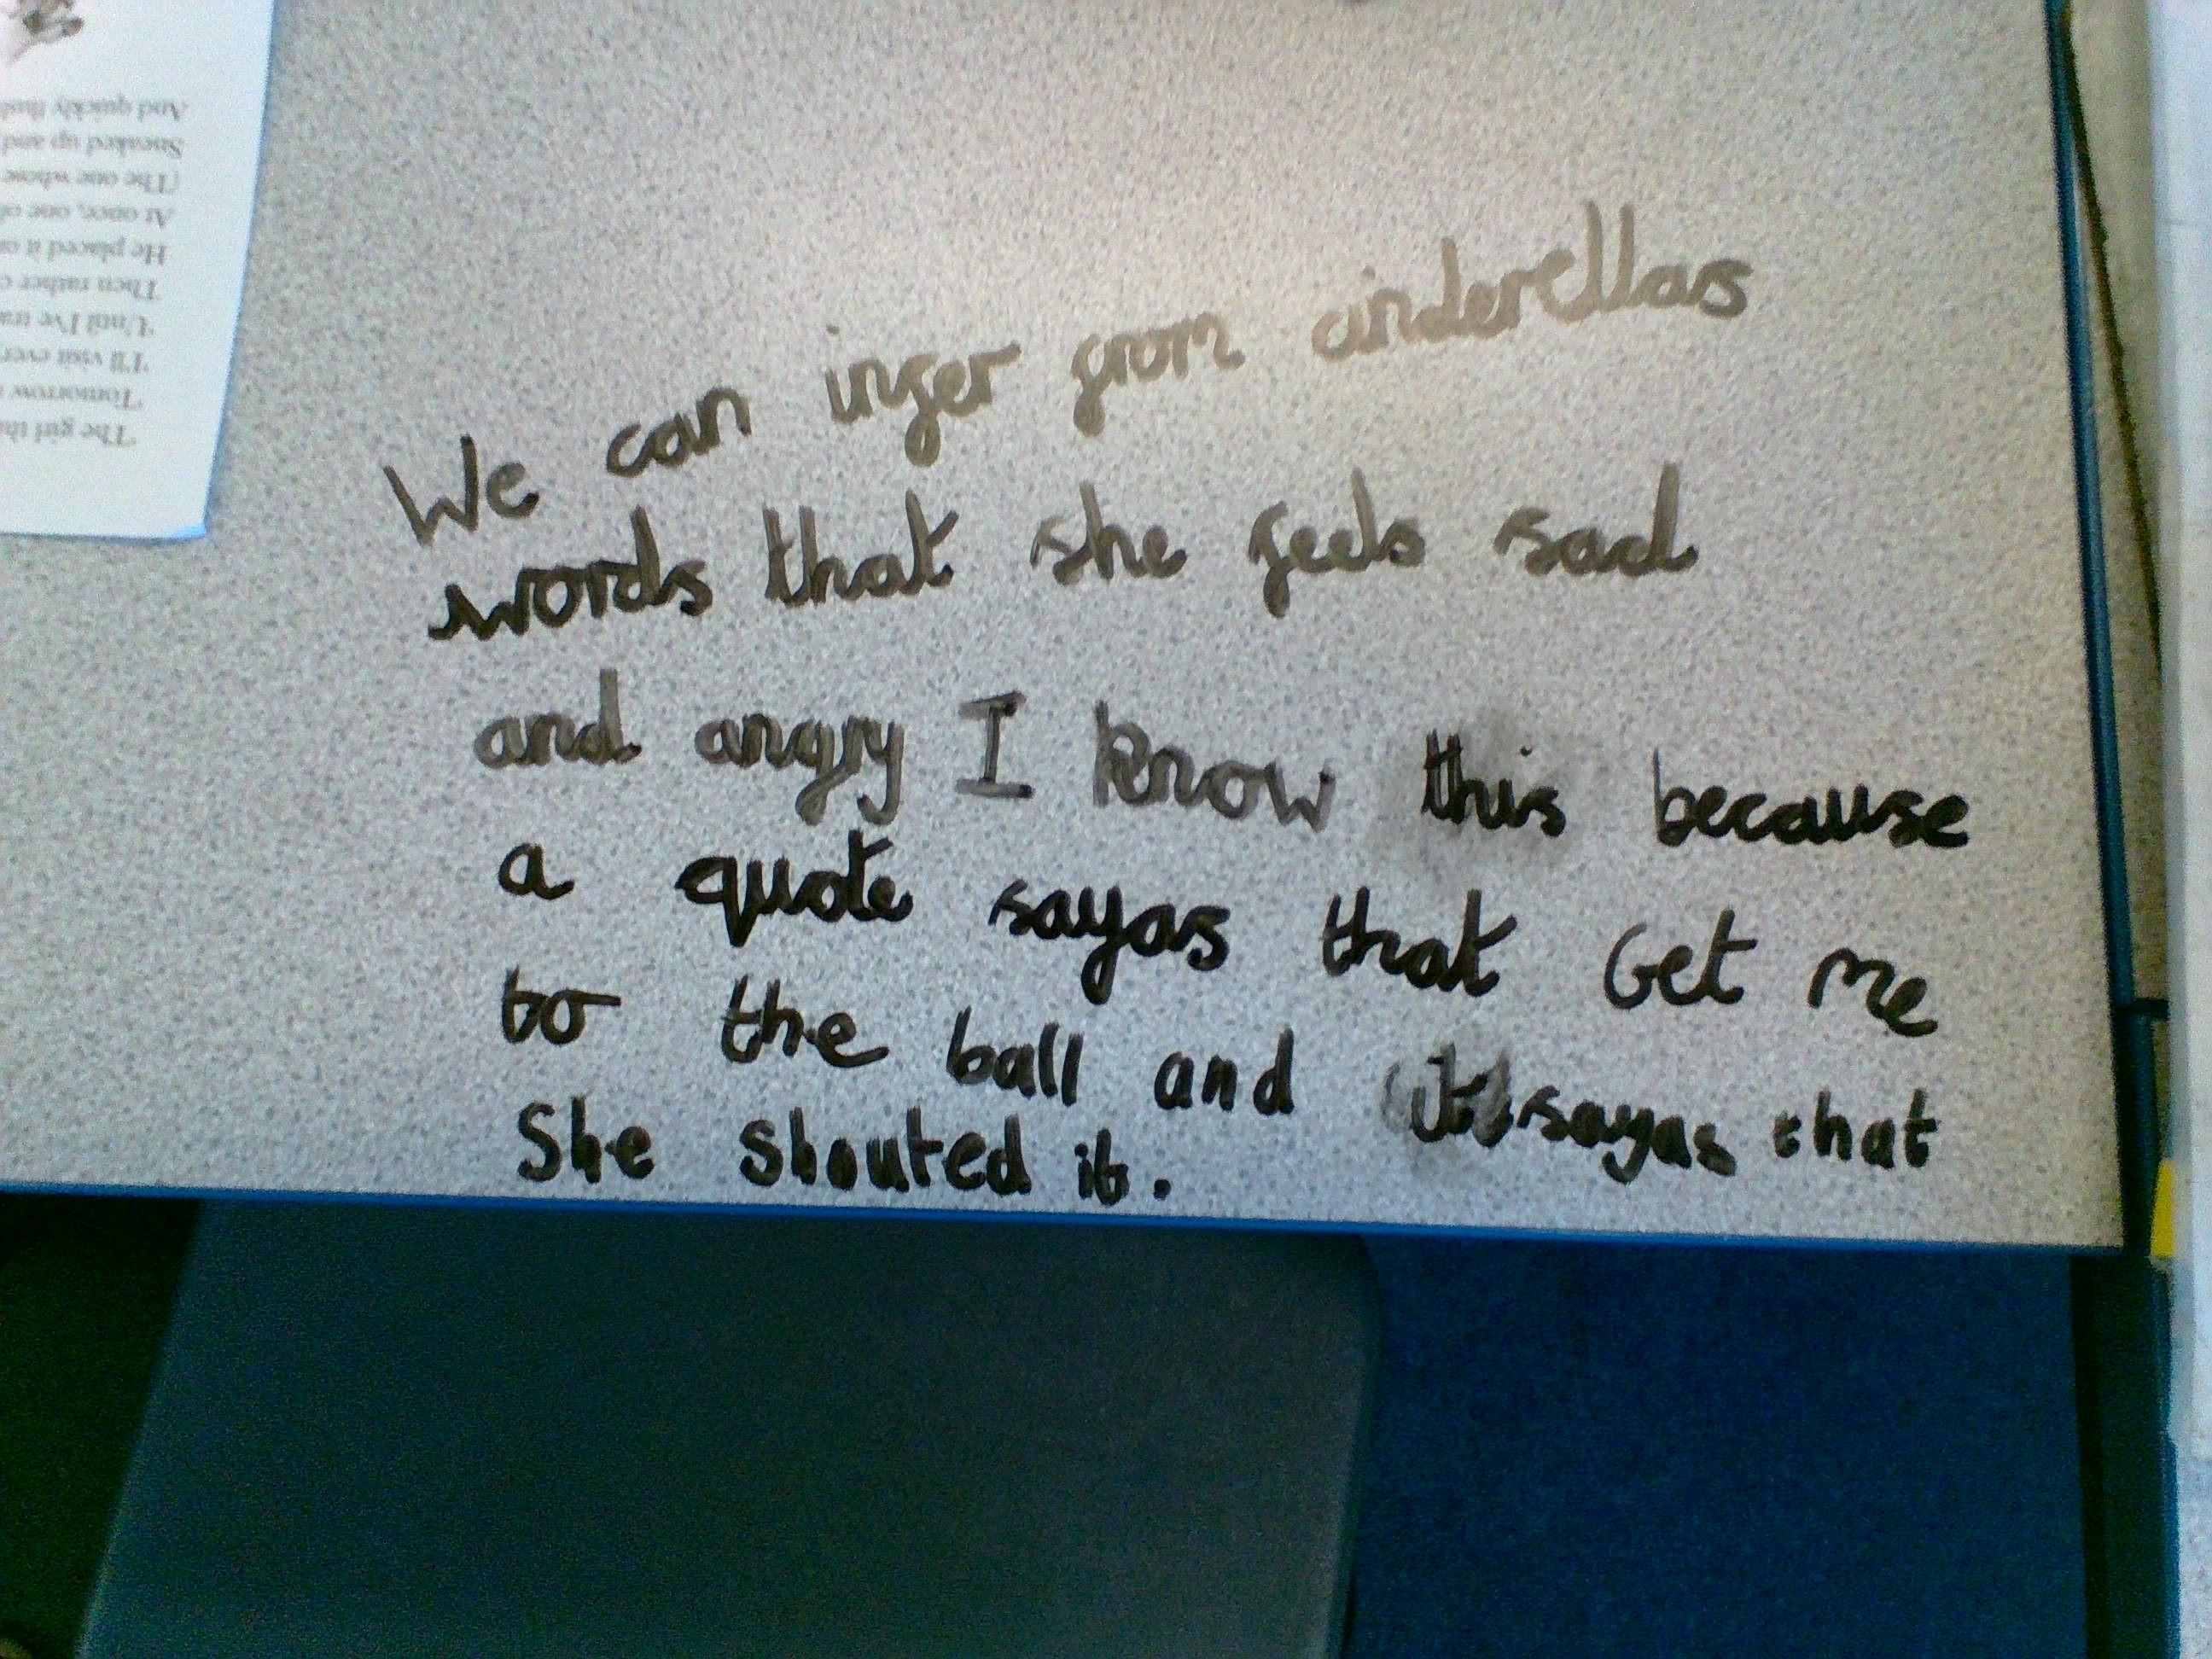 We can infer from cinderellas
words that she feels sad
and angry I know this because
a quote sayas that Get me
to the ball and it sayas that
She shouted it.
And quickly
Sneaked up and
(The one whose
At once, one of
He placed it on
Then rather
'Until I've
'I'll visit ever
'Tomorrow
'The girl